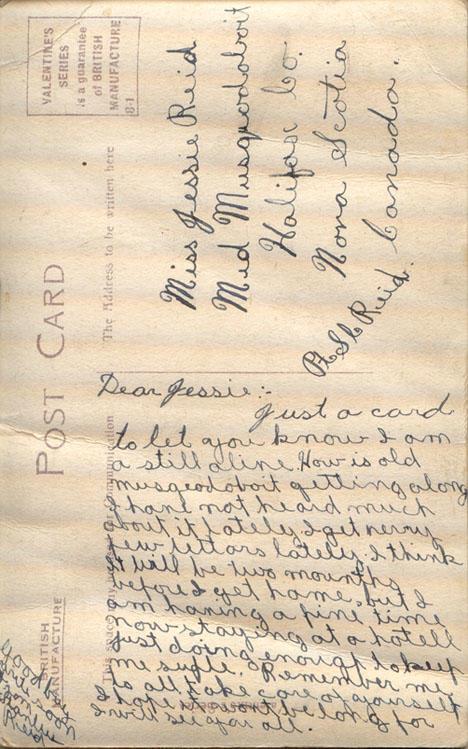 VALENTINE'S
SERIES
is a guarantee
of BRITISH
MANUFACTURE
POST CARD
The Address to be written here
BRITISH
MANUFACTURE
Miss Jessie Reid
Mid Musqeodoboit
Halifax Co.
Nova Scotia
Canada.
Reid.
Dear Jessie:-
Just a card
to let you know I am
a still aline. How is old
musqeodoboit getting along
I have not heard much
about it lately I get nerry
few lettars lately, I think
it will be two mounths
before I get home. but I
am having a fine time
now staying at a hotell
just doing enough to keep
me . Remember me
to all, take care of yourself
I hope it wont be long for
I will see you all.
Reid